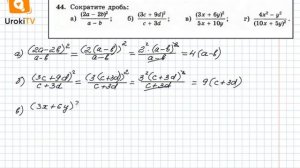 UrokiTV
44. Сократите дробь:
а) (2a − 2b)² / (a − b); б) (3c + 9d)² / (c + 3d); в) (3x + 6y)² / (5x + 10y); г) (4x² − y²) / (10x + 5y)² .
а) (2a−2b)² / (a−b) = (2(a−b))² / (a−b) = 2²(a−b)² / (a−b) = 4(a−b)
б) (3c+9d)² / (c+3d) = (3(c+3d))² / (c+3d) = 3²(c+3d)² / (c+3d) = 9(c+3d)
в) (3x+6y)²